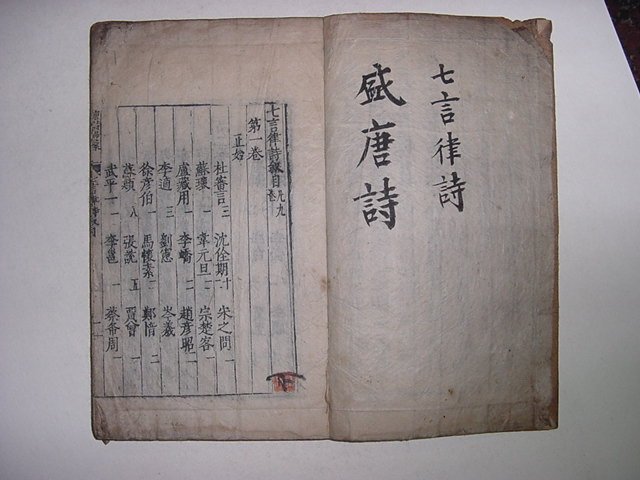 七言律詩
盛唐詩
七言律詩敘目 凡九卷
第一卷
正始
杜審言 三 沈佺期 十 宋之問 一
蘇瓌 一 韋元旦 二 宗楚客 一
盧藏用 一 李嶠 二 趙彦昭 一
李適 三 劉憲 岑羲
徐彦伯 一 馬懷素 二 鄭愔 二
蘇頲 八 張說 五 賈曾 一
武平一 一 李邕 一 蔡希周 一